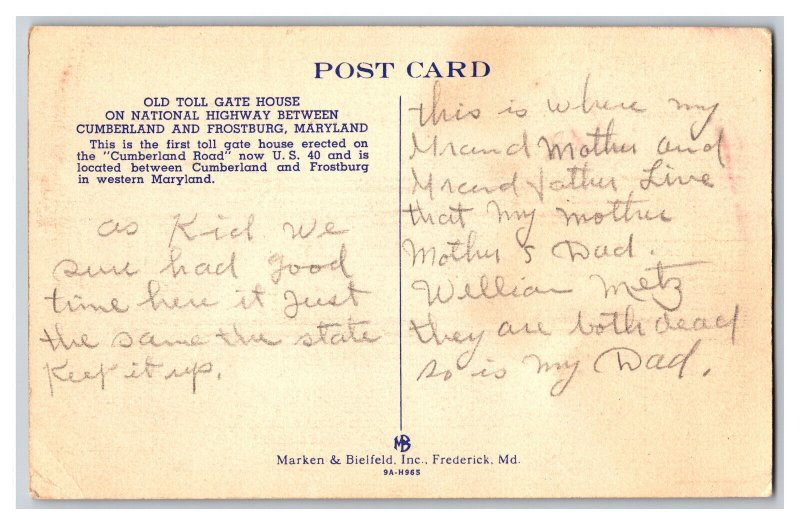 POST CARD
OLD TOLL GATE HOUSE
ON NATIONAL HIGHWAY BETWEEN
CUMBERLAND AND FROSTBURG, MARYLAND
This is the first toll gate house erected on
the "Cumberland Road" now U. S. 40 and is
located between Cumberland and Frostburg
in western Maryland.
as Kid we
sure had good
time here it Just
the same the state
Keep it up.
this is where my
Grand Mother and
Grand father Live
that my mother
Mother & Dad.
William Metz
they are both dead
so is my Dad.
MB
Marken & Bielfeld, Inc., Frederick, Md.
9A-H965